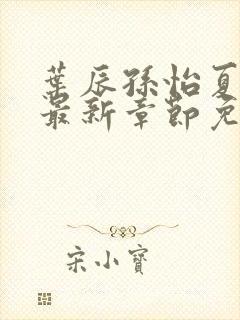 葉辰孫怡夏
最新章節免
宋小寶